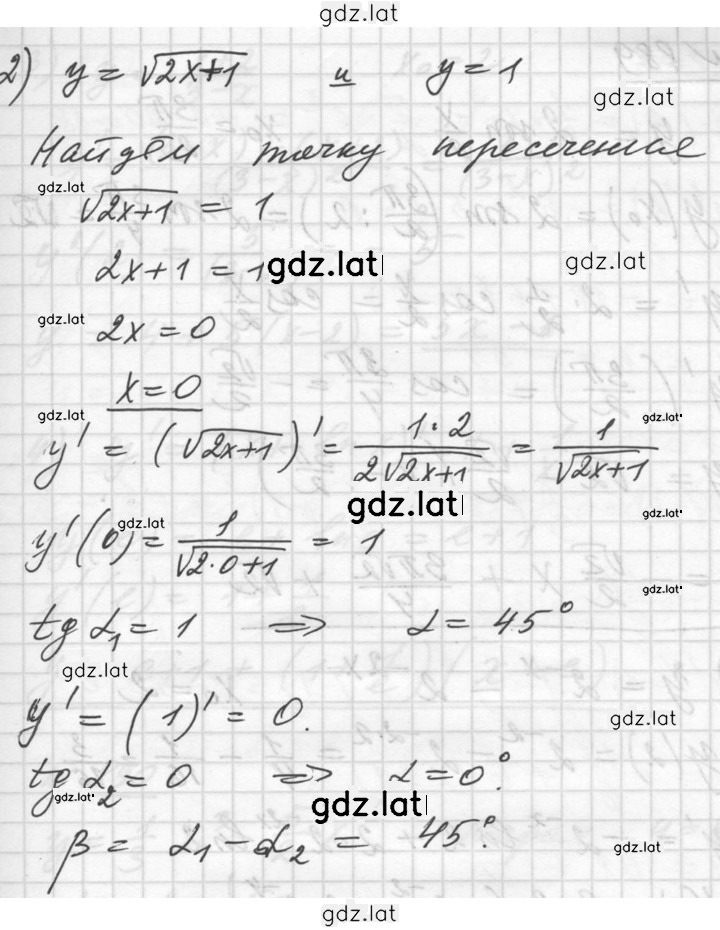 gdz.lat
2) y = √2x+1 и y = 1
gdz.lat
Найдём точку пересечения
gdz.lat
√2x+1 = 1
2x+1 = 1
gdz.lat
gdz.lat
gdz.lat
2x = 0
x = 0
gdz.lat
gdz.lat
y' = (√2x+1)' = 1·2 / 2√2x+1 = 1 / √2x+1
gdz.lat
gdz.lat
gdz.lat
y'(0) = 1 / √2·0+1 = 1
gdz.lat
tg α₁ = 1 ⇒ α = 45°
gdz.lat
y' = (1)' = 0.
gdz.lat
tg α₂ = 0 ⇒ α = 0°.
gdz.lat
gdz.lat
β = α₁ - α₂ = 45°.
gdz.lat
gdz.lat